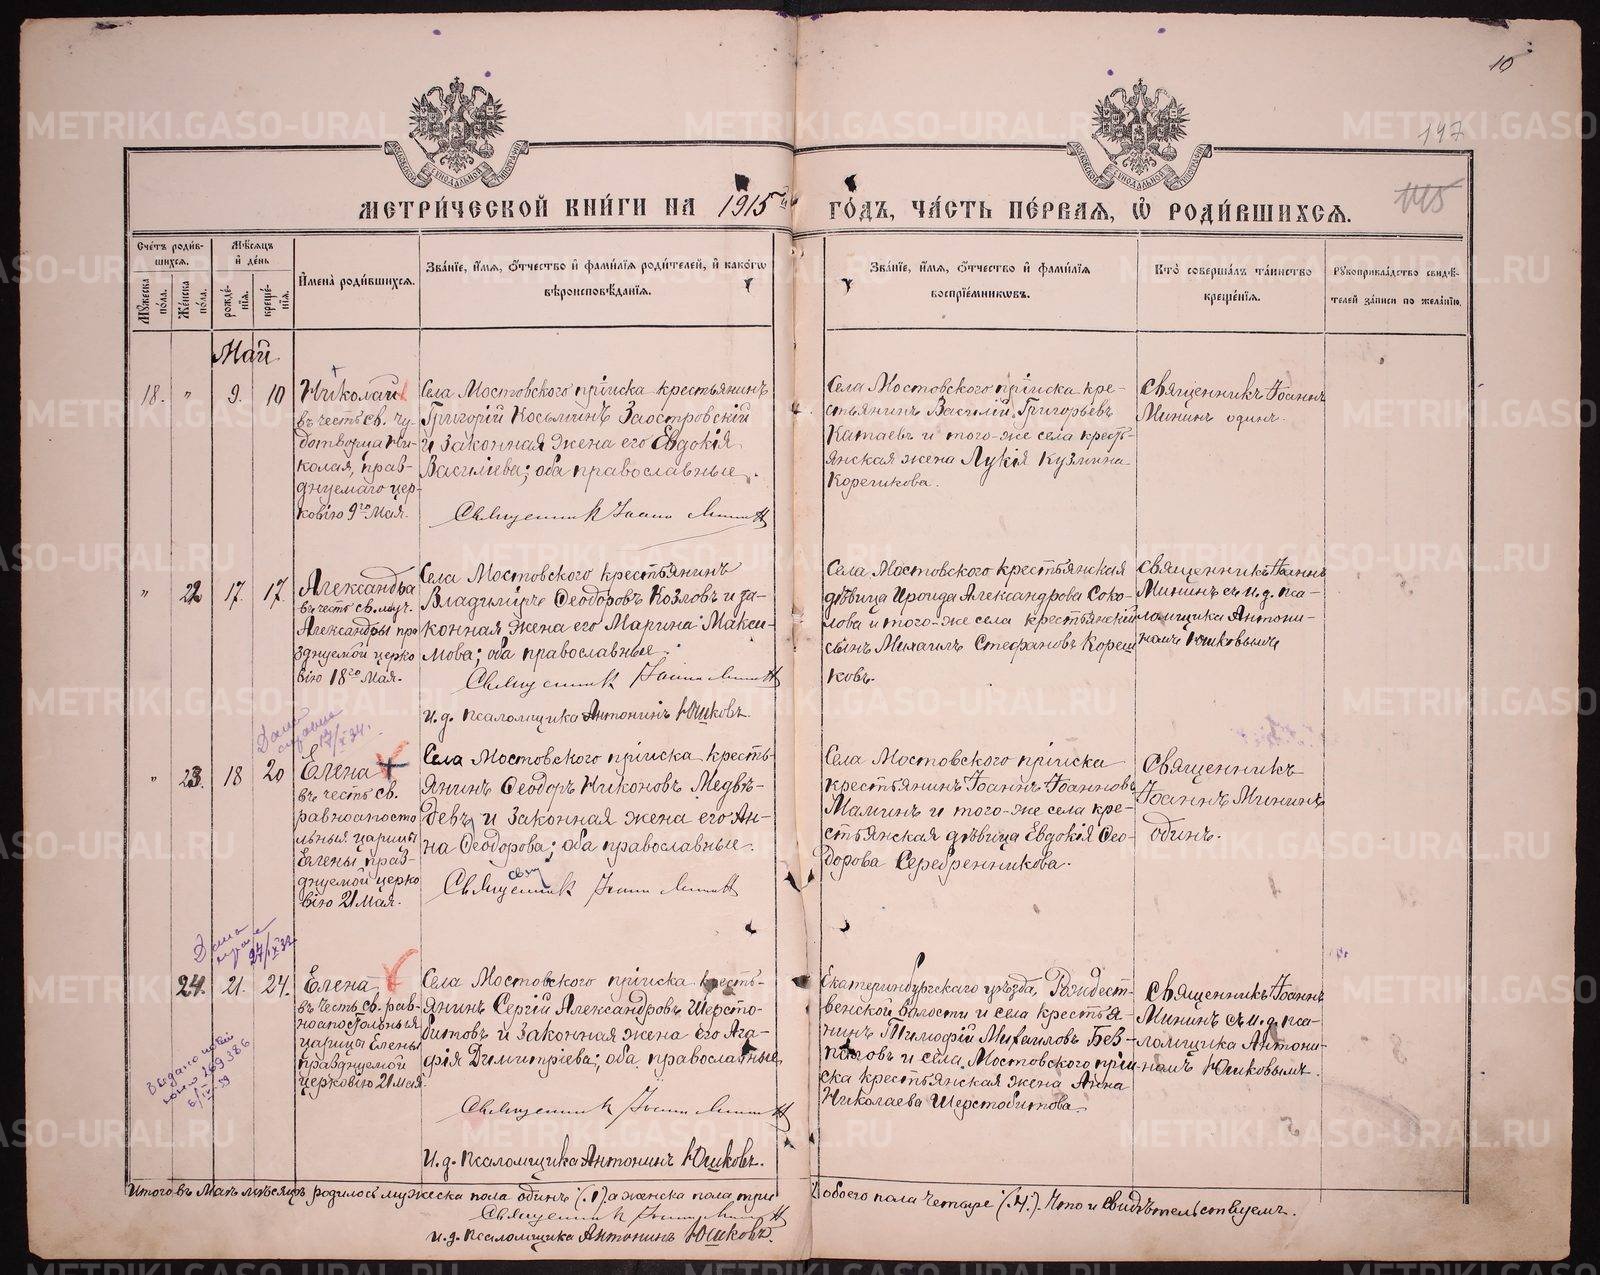 10
147
115
МЕТРИ́ЧЕСКОЙ КНИ́ГИ НА 1915й ГО́ДЪ, ЧА́СТЬ ПЕ́РВАЯ, Ѡ РОДИ́ВШИХСЯ.
Сче́тъ роди́в-
шихся.
Мѣ́сяцъ
и де́нь
Имена̀ роди́вшихся.
Зва́нїе, и́мя, о́тчество и фами́лїя роди́телей, и како́гѡ
вѣроисповѣ́данїя.
Зва́нїе, и́мя, о́тчество и фами́лїя
воспрїе́мниковъ.
Кто̀ соверша́лъ та́инство
креще́нїя.
Рукоприкла́дство свидѣ́-
телей за́писи по жела́нїю.
Му́жеска
по́ла.
Же́нска
по́ла.
рожде́-
нїя.
креще́-
нїя.
Май
18. " 9. 10
Николай
въ честь св. чу-
дотворца Ни-
колая, праз-
днуемаго цер-
ковію 9го Мая.
Села Мостовского пріиска крестьянинъ
Григорій Косьминъ Заостровскій
и законная жена его Евдокія
Василіева; оба православные.
Священник Іоанн Минин
Села Мостовского пріиска кре-
стьянинъ Василій Григорьевъ
Катаевъ и того-же села кресть-
янская жена Лукія Кузмина
Корепикова.
Священникъ Іоаннъ
Мининъ одинъ.
" 22 17. 17.
Александра
въ честь св. муч.
Александры пра
зднуемой церко
вію 18го Мая.
Села Мостовского крестьянинъ
Владиміръ Ѳеодоровъ Козловъ и за-
конная жена его Марина Макси-
мова; оба православные.
Священник Іоанн Минин
и. д. псаломщика Антонинъ Юшковъ.
Села Мостовского крестьянская
дѣвица Ираида Александрова Соко-
лова и того-же села крестьянскій
сынъ Михаилъ Стефановъ Кореш
ковъ.
Священникъ Іоаннъ
Мининъ съ и. д. пса-
ломщика Антони-
номъ Юшковымъ
Дана
справка
" 23. 18 20
Елена
въ честь св.
равноапосто
льныя царицы
Елены, праз-
днуемой церко
вію 21 Мая.
Села Мостовского пріиска кресть-
янинъ Ѳеодоръ Никоновъ Медвѣ-
девъ и законная жена его Ан-
на Ѳеодорова; оба православные.
Священник Іоанн Минин
Села Мостовского пріиска
крестьянинъ Іоаннъ Іоанновъ
Маминъ и того-же села кре-
стьянская дѣвица Евдокія Ѳео-
дорова Серебренникова.
Священникъ
Іоаннъ Мининъ
одинъ.
Дана
справка
27/IX 32
24. 21. 24.
Елена,
въ честь св. рав-
ноапостольныя
царицы Елены
празднуемой
церковію 21 мая.
Села Мостовского пріиска кресть-
янинъ Сергій Александровъ Шерсто-
битовъ и законная жена его Ага-
фія Димитріева; оба православные,
Священник Іоанн Минин
и. д. псаломщика Антонинъ Юшковъ.
Екатеринбургскаго уѣзда, Рождест-
венской волости и села крестья-
нинъ Тимофій Михаиловъ Без-
паловъ и села Мостовского прiи-
ска крестьянская жена Анна
Николаева Шерстобитова.
Священникъ Іоаннъ
Мининъ съ и. д. пса-
ломщика Антони-
номъ Юшковымъ.
Итого въ Маѣ мѣсяцѣ родилось мужеска пола одинъ (.1.) а женска пола три обоего пола четыре (.4.). Что и свидѣтельствуемъ.
Священник Іоанн Минин
и. д. псаломщика Антонинъ Юшковъ.
METRIKI.GASO-URAL.RU